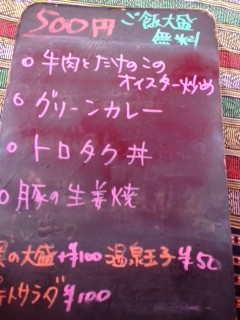 500円 ご飯大盛
無料
○牛肉とたけのこの
オイスター炒め
○グリーンカレー
○トロタク丼
○豚の生姜焼
の大盛+¥100 温泉玉子¥50
サラダ¥100